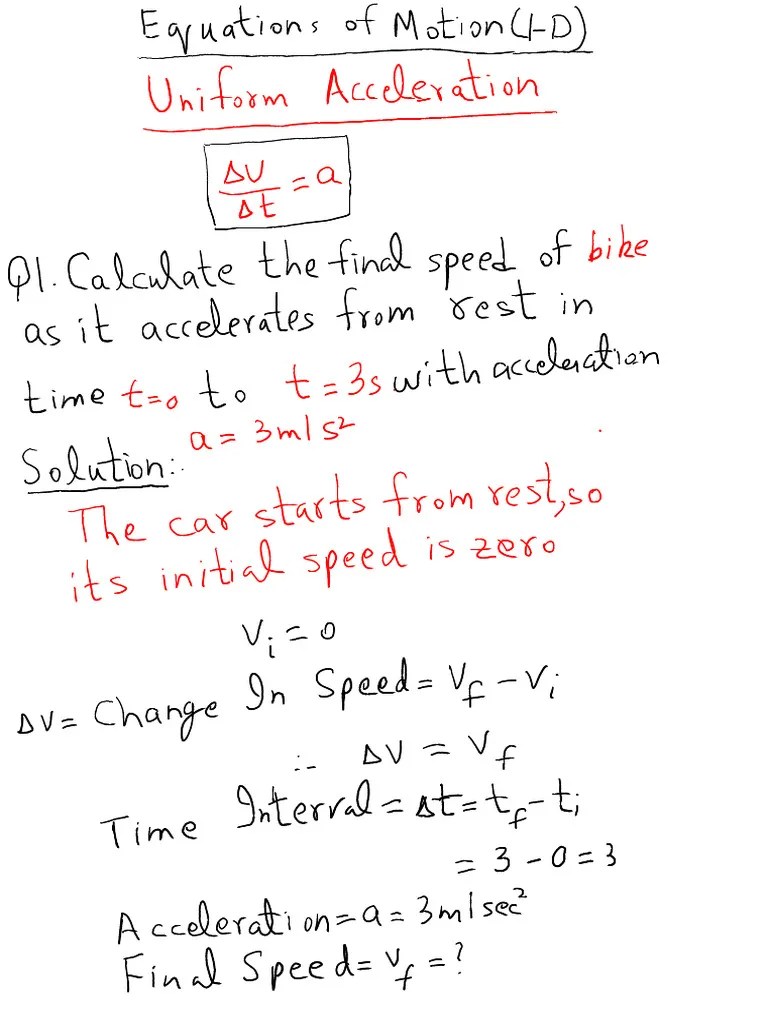 Equations of Motion (1-D)
Uniform Acceleration
ΔV/Δt = a
Q1. Calculate the final speed of bike
as it accelerates from rest in
time t=0 to t=3s with acceleration
a = 3m/s²
Solution:-
The car starts from rest, so
its initial speed is zero
Vᵢ = 0
ΔV = Change In Speed = V_f - Vᵢ
∴ ΔV = V_f
Time Interval = Δt = t_f - tᵢ
= 3 - 0 = 3
Acceleration = a = 3m/sec²
Final Speed = V_f = ?